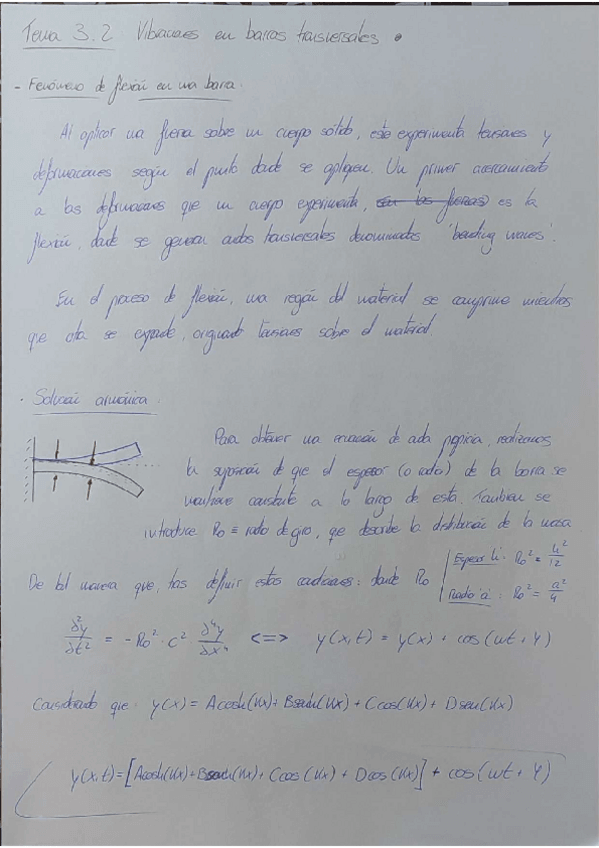 Tema 3.2 Vibraciones en barras transversales.
- Fenómeno de flexión en una barra.
Al aplicar una fuerza sobre un cuerpo sólido, este experimenta tensiones y
deformaciones según el punto donde se apliquen. Un primer acercamiento
a las deformaciones que un cuerpo experimenta, es la
flexión, donde se generan ondas transversales denominadas 'bending waves'.
En el proceso de flexión, una región del material se comprime mientras
que otra se expande, originando tensiones sobre el material.
· Solución armónica.
Para obtener una ecuación de onda propicia, realizamos
la suposición de que el espesor (o radio) de la barra se
mantiene constante a lo largo de esta. Tambien se
introduce Ro ≡ radio de giro, que describe la distribución de la masa
De tal manera que, tras definir estas condiciones: donde Ro
Espesor h: Ro² = h²/12
Radio a: Ro² = a²/4
∂²y/∂t² = -Ro² · c² · ∂⁴y/∂x⁴ <=> y(x,t) = y(x) + cos(ωt + φ)
Considerando que: y(x) = Acosh(Kx) + Bsenh(Kx) + Ccos(Kx) + Dsen(Kx)
y(x,t) = [Acosh(Kx) + Bsenh(Kx) + Ccos(Kx) + Dcos(Kx)] + cos(ωt + φ)